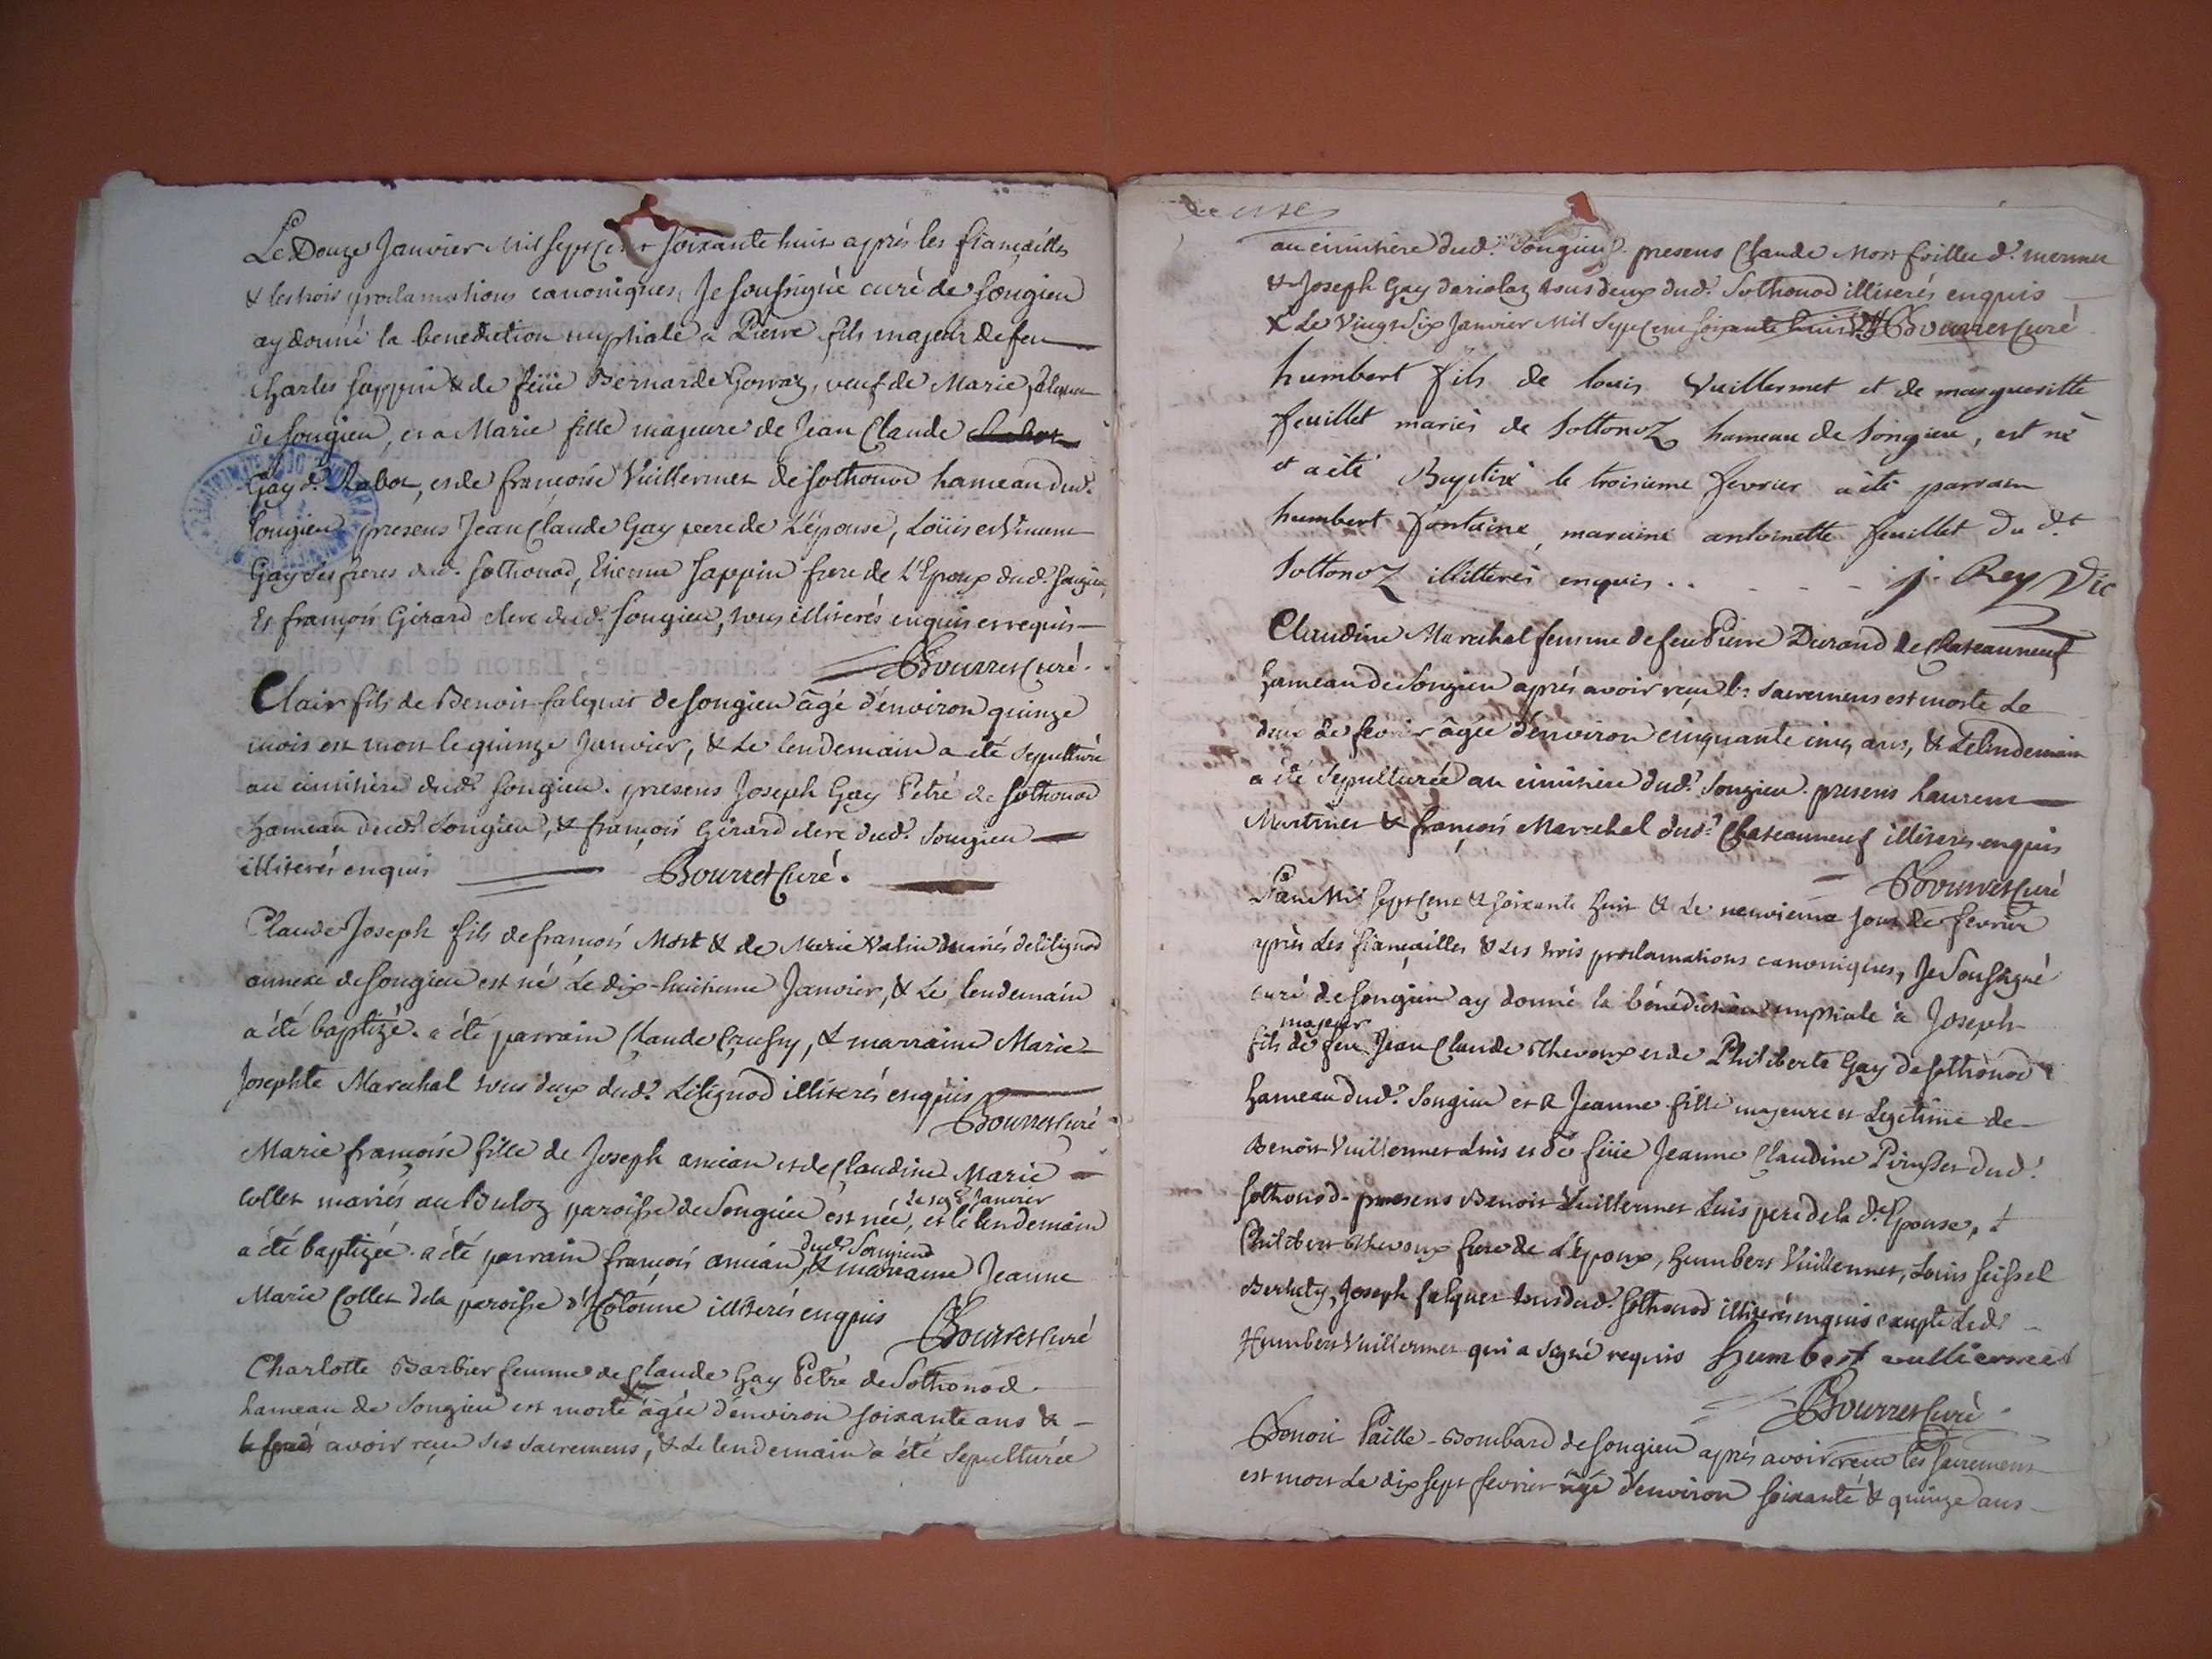 Le Douze Janvier Mil Sept Cent soixante huit aprés les fiançailles
& les trois proclamations canoniques, Je soussigné curé de Songieu
ay donné la benediction nuptiale a Pierre fils majeur de feu
Charles Jappin & de feüe Bernarde Gorraz, veuf de Marie
de Songieu, et a Marie fille majeure de Jean Claude
Gay d.t Rabot, et de françoise Vuillermet de Sothonod hameau dud.t
Songieu presens Jean Claude Gay pere de L'épouse, Loüis et Vincent
Gay ses freres dud.t Sothonod, Etienne Jappin frere de L'Epoux dud.t Songieu,
Et françois Girard clerc dud.t Songieu, tous illiterés enquis et requis
Bourret Curé.
Clair fils de Benoit falquet de Songieu âgé d'environ quinze
mois est mort le quinze Janvier, & Le lendemain a été sepulturé
au cimitière dud.t Songieu. presens Joseph Gay Petré de Sothonod
hameau dud.t Songieu, & françois Girard clerc dud.t Songieu
illiterés enquis Bourret Curé.
Claude Joseph fils de françois Mort & de Marie mariés de Lilignod
annexe de Songieu est né Le dix-huitieme Janvier, & Le lendemain
a été baptizé. a été parrain Claude, & marraine Marie
Josephte Marechal tous deux dud.t Lilignod illiterés enquis
Bourret Curé
Marie françoise fille de Joseph ancian et de Claudine Marie
Collet mariés au Buloz paroisse de Songieu est née, et le lendemain
Janvier
a été baptizée. a été parrain françois ancian, & marraine Jeanne
dud.t Songieu
Marie Collet de la paroisse d'hotonne illiterés enquis Bourret Curé
Charlotte Barbier femme de Claude Gay Pétré de Sothonod
hameau de Songieu est morte âgée d'environ soixante ans &
avoir reçu ses sacremens, & Le lendemain a été sepulturée
au cimitière dud.t Songieu. presens Claude Mort d.t mermet
& Joseph Gay tous deux dud.t Sothonod illiterés enquis
X Le Vingt Six Janvier Mil Sept Cent soixante huit Bourret Curé
humbert fils de louis Vuillermet et de margueritte
feuillet mariés de Sottonoz hameau de Songieu, est né
et a été Baptisé le troisieme fevrier a été parrain
humbert fontaine, maraine antoinette feuillet du d.t
Sottonoz illitterés enquis . . - - - j. Rey Vic
Claudine Marechal femme de feu Pierre Durand de Chateauneuf
hameau de Songieu aprés avoir reçu les sacremens est morte Le
deux de fevrier âgée d'environ cinquante cinq ans, & Le lendemain
a été sepulturée au cimitiere dud.t Songieu. presens Laurent
Martinet & françois Marechal dud.t Chateauneuf illiterés enquis
Bourret Curé
L'an Mil Sept Cent & soixante huit & Le neuvieme jour de fevrier
aprés Les fiançailles & Les trois proclamations canoniques, Je soussigné
curé de Songieu ay donné la bénédiction nuptiale à Joseph
majeur
fils de feu Jean Claude Thevoux et de Philiberte Gay de Sothonod
hameau dud.t Songieu et a Jeanne fille majeure et Legitime de
Benoit Vuillermet Luis et de feüe Jeanne Claudine dud.t
Sothonod. presens Benoit Vuillermet Luis pere de la d.te Epouse, &
Philibert Thevoux frere de L'époux, humbert Vuillermet, Louis Seissel
Joseph falquet tous dud.t Sothonod illiterés enquis excepté Led.t
Humbert Vuillermet qui a signé requis humbert vulliermet
Bourret Curé
Benoit Paille-Bombard de Songieu aprés avoir reçu les sacremens
est mort Le dix sept fevrier âgé d'environ soixante & quinze ans